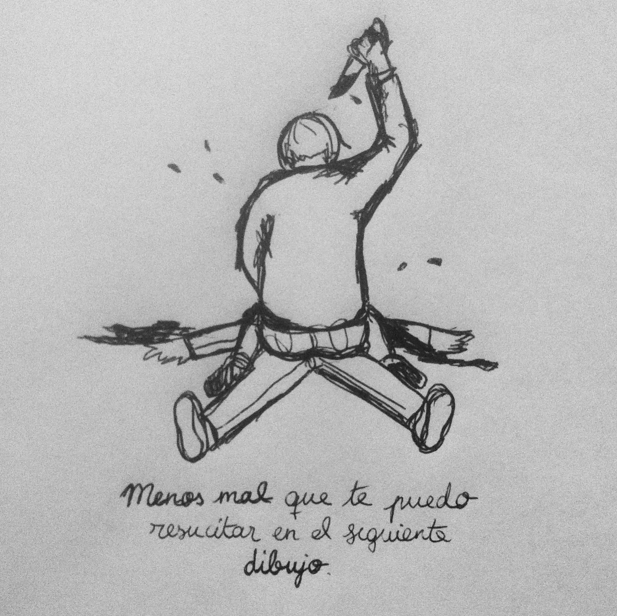 Menos mal que te puedo
resucitar en el siguiente
dibujo.